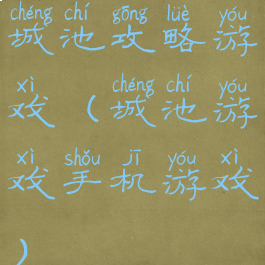 chéng chí gōng lüè yóu
城池攻略游
xì chéng chí yóu
戏（城池游
xì shǒu jī yóu xì
戏手机游戏
）